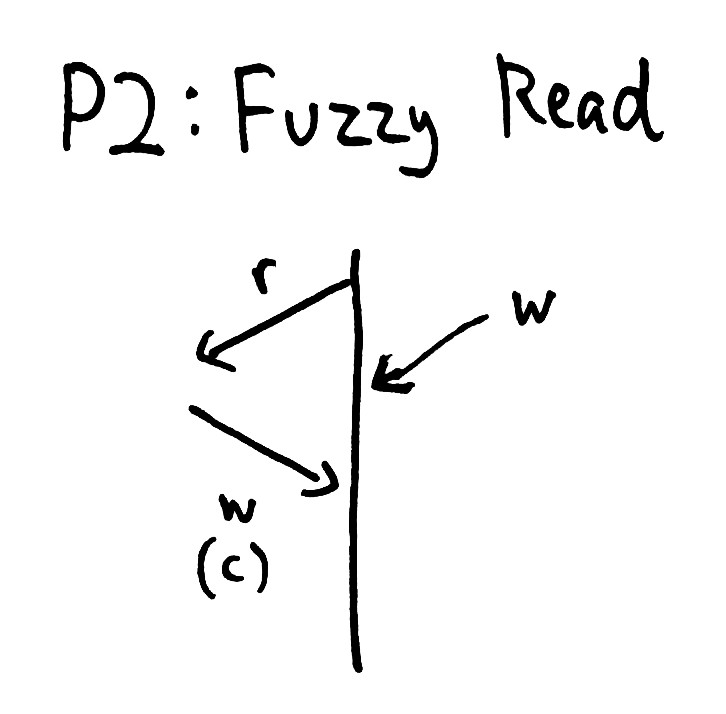 P2: Fuzzy Read
r
w
w
(c)